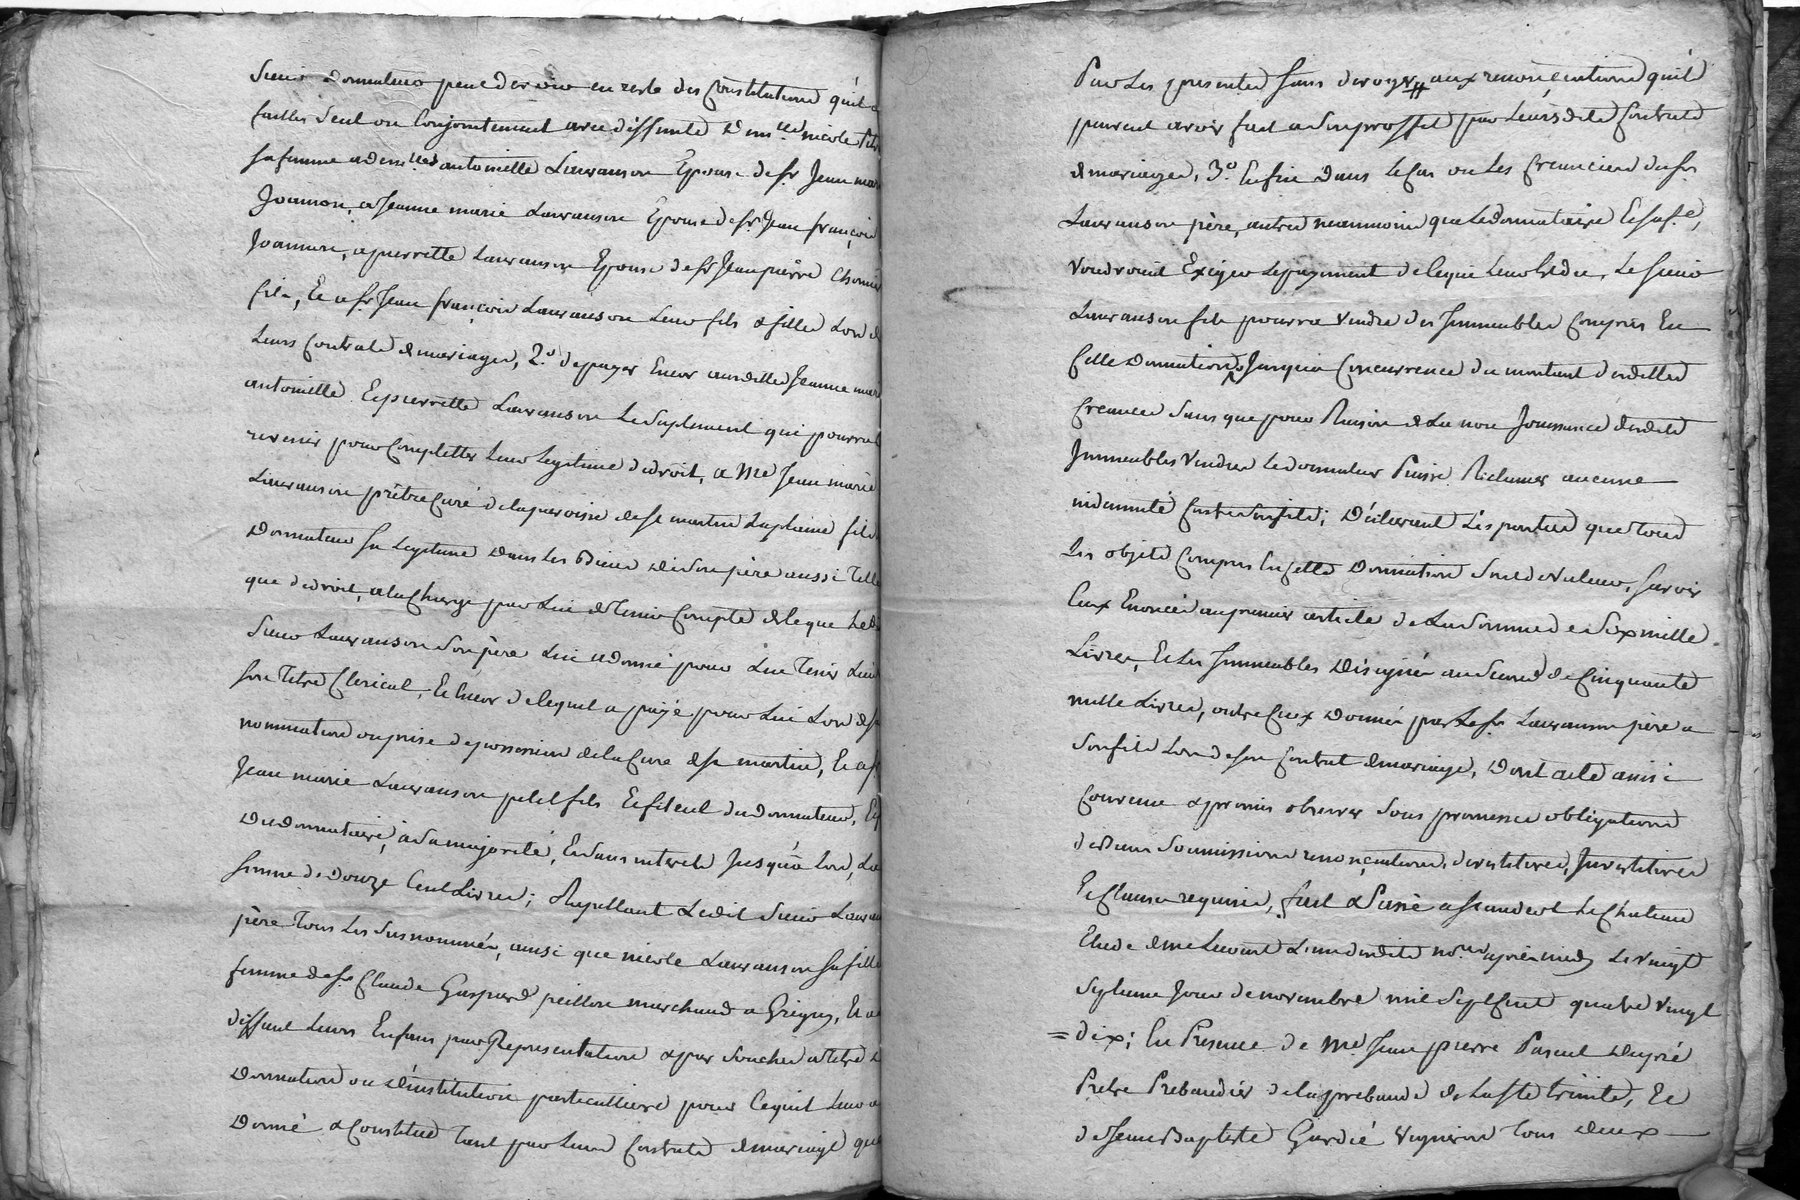 Sieur donnateur peut devoir en reste des Constitutions qu'il a
faittes seul ou Conjointement avec deffunte Dem.lle nicole
sa femme a dem.lles antoinette Lauranson Epouse de sr Jean mar
Joannon, a Jeanne marie Lauranson Epouse de sr Jean françois
Joannon, a pierrette Lauranson Epouse de sr Jean pierre
fils, Et a sr Jean françois Lauranson leur fils & filles Lors de
Leurs Contrats de mariage, 2.o de payer Encor auxdittes Jeanne mar
antoinette Et pierrette Lauranson Le suplement qui pourroit
revenir pour Completter Leur legitime de droit, a Me Jean marie
Lauranson prêtre Curé de la paroisse de st martin la plaine fils
Donnateur sa legitime Dans les Biens de son père aussi telle
que de droit, a la Charge par Lui de tenir Compte de ce que Led
Sieur Lauranson son père Lui a donné pour Lui tenir Lieu
son titre Clerical, Et Encor de ce quil a payé pour Lui Lors de sa
nomination ou prise de possession de la Cure de st martin, Et a sr
Jean marie Lauranson petit fils Et filleul du donnateur, Et
Du donnataire, a sa majorité, Et sans interets Jusqu'a lors, La
somme de Douze Cent Livres; Rapellant Ledit Sieur Lauran
père tous les susnommés, ainsi que nicole Lauranson sa fille
femme de sr Claude Gaspard peillon marchand a Grigny, Et a
deffaut Leurs Enfans par Representation & par Souches a titre de
Donnation ou D'institution particulliere pour Ce quil Leur a
Donné & Constitué tant par Leurs Contrats de mariage que
Par Les presentes sans deroger aux renonciations quil
peuvent avoir fait a son proffit par Leursdits Contrats
de mariage, 3.o Enfin Dans le Cas ou Les Creanciers du sr
Lauranson père, autres neanmoins que Le donnataire Et sa fe,
voudroient Exiger Le payement de ce qui Leur est du, Le sieur
Lauranson fils pourra vendre des Immeubles Compris En
Cette Donnation Jusqu'a Concurrence du montant desdittes
Creances sans que pour Raison de La non Jouissance desdits
Immeubles vendus Le donnateur Puisse Reclamer aucune
indemnité Contre son fils; Déclarant Les parties que tous
Les objets Compris En Cette Donnation sont de valeur, savoir
Ceux Enoncés au premier article de La somme de Six mille
Livres, Et les Immeubles Désignés au second de Cinquante
mille Livres, outre Ceux Donnés par Le sr Lauranson père a
son fils Lors de son Contrat de mariage, Dont acte ainsi
Convenu & promis observer sous promesses obligations
de Biens soumissions renonciations, devestitures, Investitures
Et Clauses requises, fait & Passé a st andeol Le Chateau
Etude de me Lun desdits no.res après midy Le vingt
septieme Jour de novembre mil sept Cent quatre vingt
= dix; En Presence de Me Jean pierre Pascal Dupré
Prêtre Prebandier de la prebande de La ste trinité, Et
de Jean Baptiste Gardié vigneron tous deux